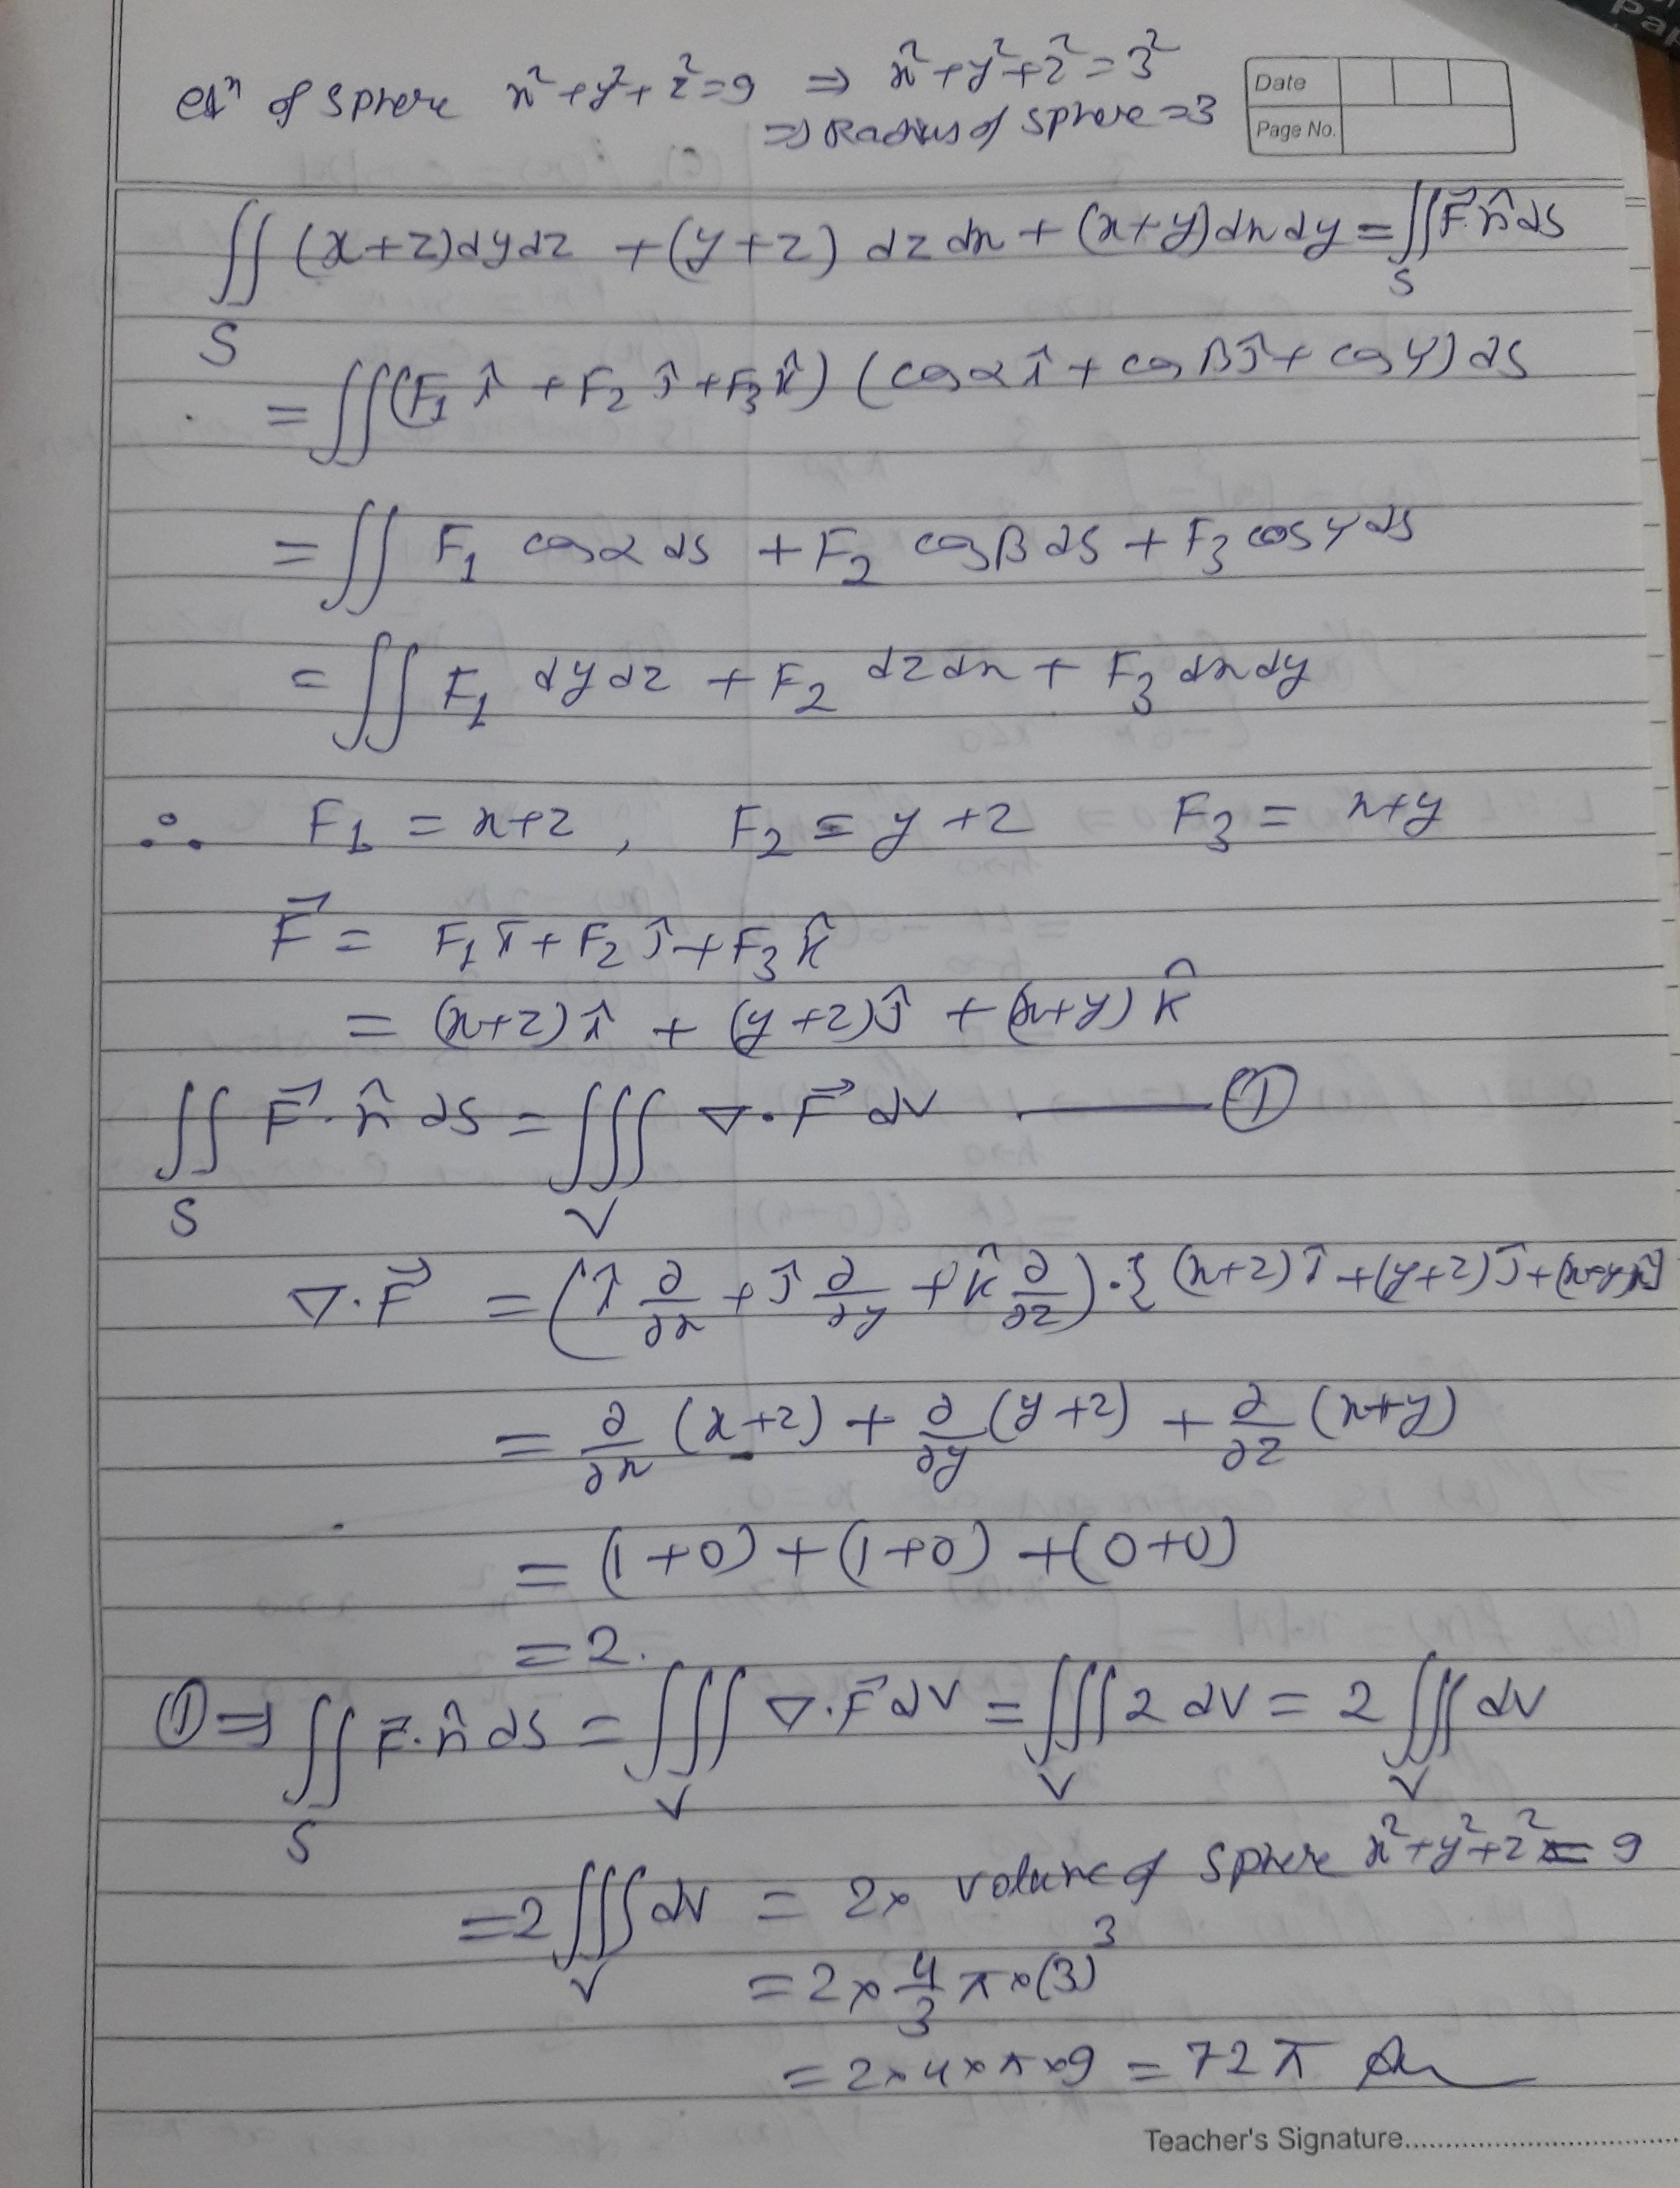 eqⁿ of sphere x²+y²+z²=9 ⇒ x²+y²+z²=3²
⇒ Radius of sphere=3
Date
Page No.
∬_S (x+z)dydz + (y+z) dzdx + (x+y)dxdy = ∬_S F⃗.n̂ ds
= ∬(F₁ î + F₂ ĵ + F₃ k̂) (cosα î + cosβ ĵ + cosγ) ds
= ∬ F₁ cosα ds + F₂ cosβ ds + F₃ cosγ ds
= ∬ F₁ dydz + F₂ dzdx + F₃ dxdy
∴ F₁ = x+z , F₂ = y+z F₃ = x+y
F⃗ = F₁ î + F₂ ĵ + F₃ k̂
= (x+z) î + (y+z) ĵ + (x+y) k̂
∬_S F⃗.n̂ ds = ∭_V ∇.F⃗ dV —— ①
∇.F⃗ = (î ∂/∂x + ĵ ∂/∂y + k̂ ∂/∂z).{(x+z) î + (y+z) ĵ + (x+y) k̂}
= ∂/∂x (x+z) + ∂/∂y (y+z) + ∂/∂z (x+y)
= (1+0) + (1+0) + (0+0)
= 2.
① ⇒ ∬_S F⃗.n̂ ds = ∭_V ∇.F⃗ dV = ∭_V 2 dV = 2 ∭_V dV
= 2 ∭_V dV = 2× volume of sphere x²+y²+z² = 9
= 2 × 4/3 π × (3)³
= 2×4×π×9 = 72 π
Teacher's Signature